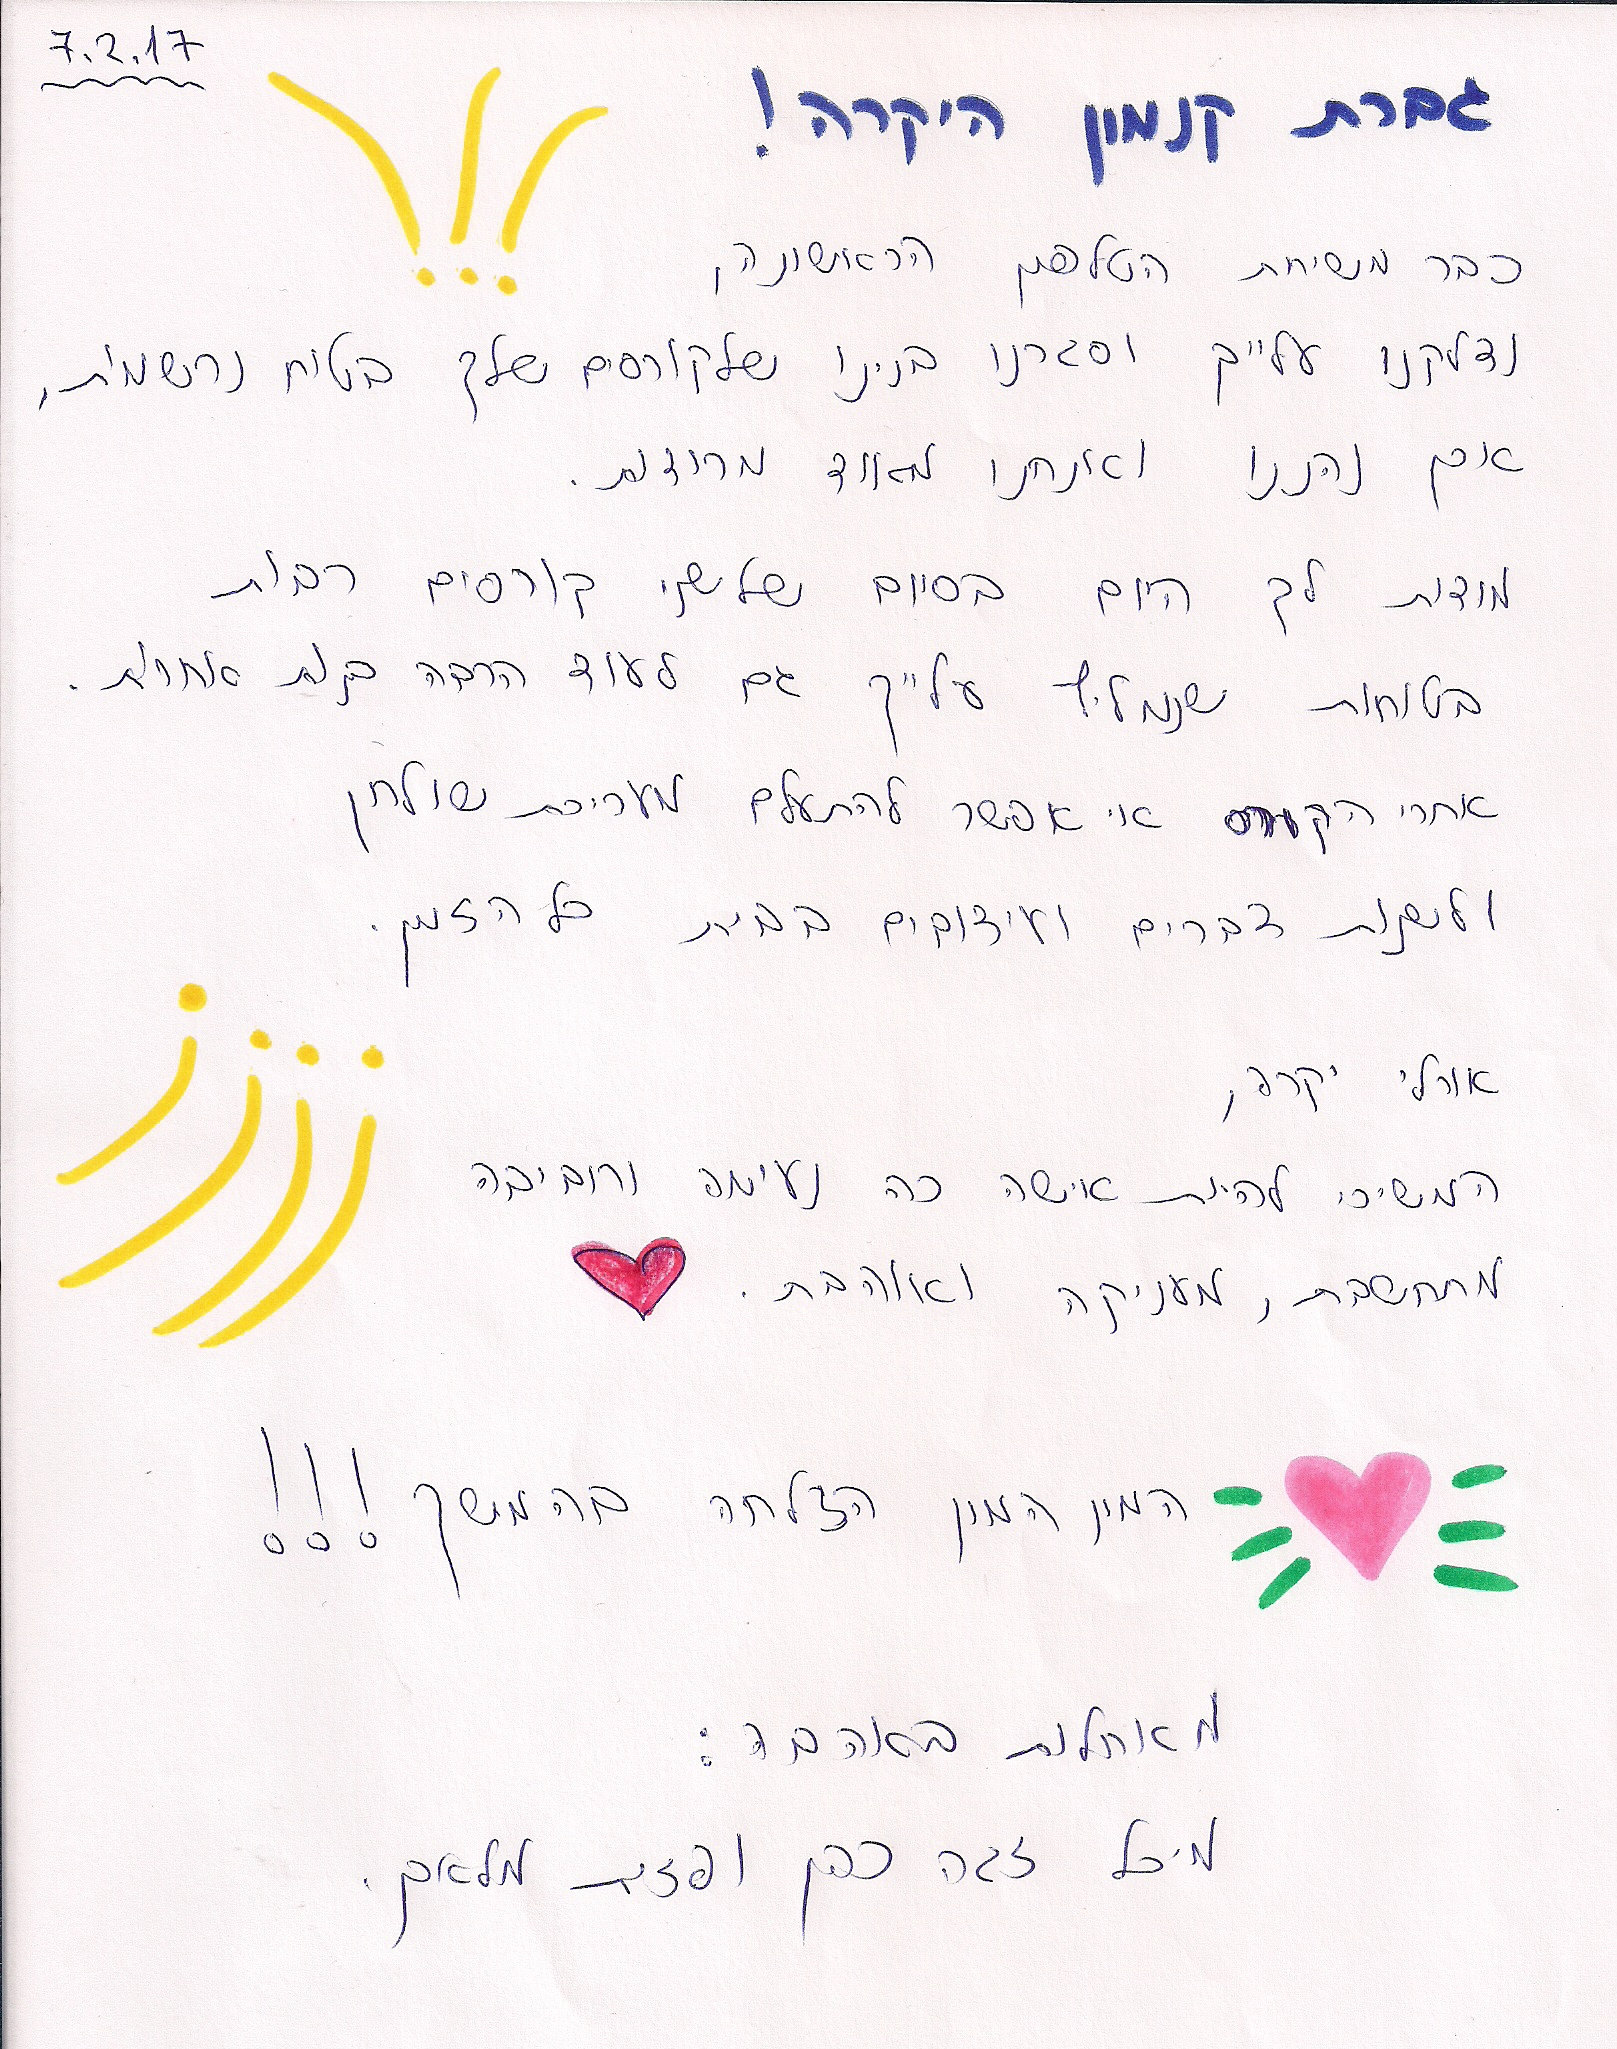 7.2.17
גברת קנמון היקרה!
כבר משיחת הטלפון הראשונה,
נדלקנו עלייך וסגרנו בנינו שלקורסים שלך בטוח נרשמות,
אכן נהננו ואנחנו מאווד מרוצות.
מודות לך היום בסיום שלשני קורסים רבות
בטוחות שנמליץ עלייך גם לעוד הרבה בנות אחרות.
אחרי הקורס אי אפשר להתעלם מעריכת שולחן
ולשנות דברים ועיצובים בבית כל הזמן.
אורלי יקרה,
המשיכי להיות אישה כה נעימה ורוביבה
מתחשבת, מעניקה ואוהבת.
המון המון הצלחה בהמשך!!!
מאחלות באהבה:
מיכל זגה כהן ופזית מלאכן.